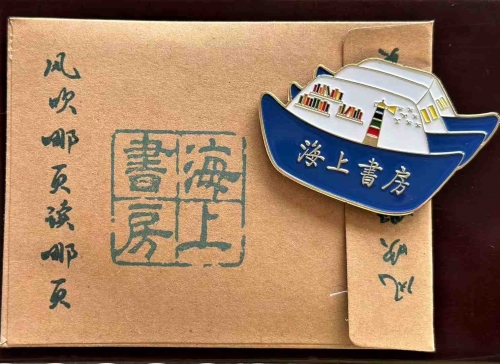 风吹哪页读哪页
海上
書房
海上書房
风吹